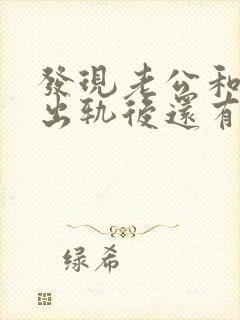 發現老公和
出轨後還有
绿希